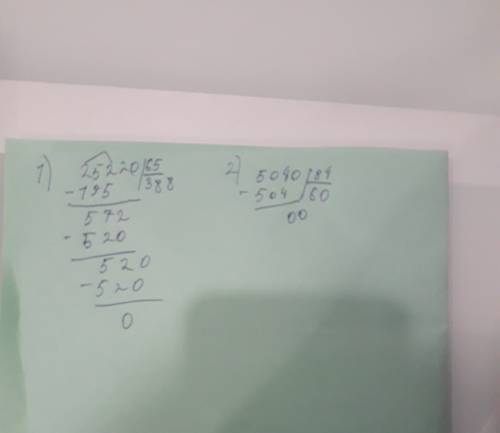 1) 25220 | 65
- 195 | 388
572
- 520
520
- 520
0
2) 5040 | 84
- 504 | 60
00